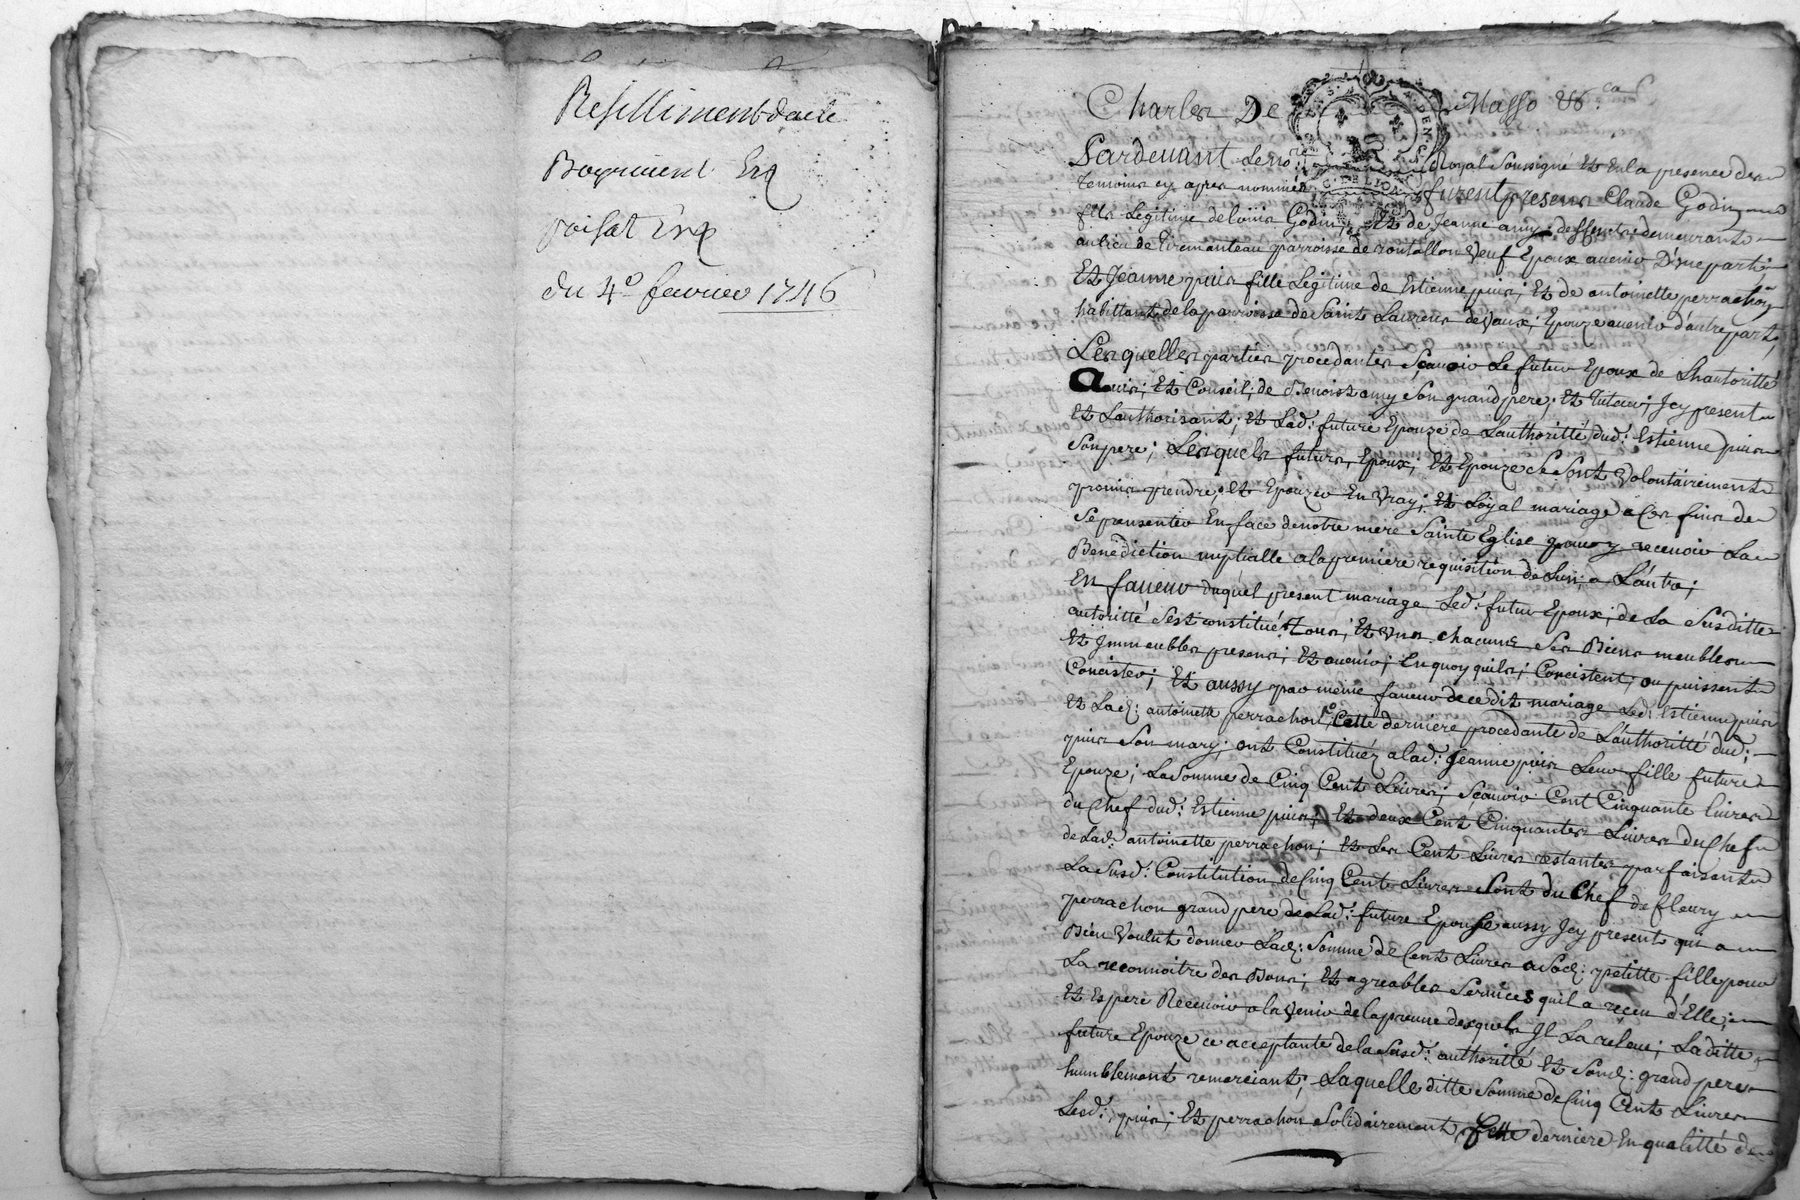 Resilliment dacte
Bayment Et
poisat Et
du 4e. fevrier 1746
Charles De Masso &c ca
Pardevant Le no.re Royal Soussigné Et En la presence des
Temoins cy apres nommés furent presens Claude Godin
fils Legitime de Louis Godin, Et de Jeanne amy deffuncts demeurants
au lieu de Tiremanteau parroisse de rontallon Veuf Epoux avenir D'une part
Et Jeanne puis fille Legitime de Estienne puis; Et de antoinette perrachon
habittants de la parroisse de Saint Laurens de Vaux; Epouze avenir d'autre part,
Lesquelles parties procedantes Sçavoir Le futur Epoux de Lhautoritté
avis; Et Conseil; de Benoist amy Son grand pere; Et Tuteur; Icy present
Et Lauthorisant; Et Lad: future Epouze de Lauthoritté dud: Estienne puis
Son pere; Lesquels futurs, Epoux; Et Epouze Se Sont Volontairement
promis prendre; Et Epouzer En Vray; Et Loyal mariage a Ces fins de
Se presenter En face de notre mere Sainte Eglise pour y recevoir La
Benediction nuptialle a la premiere requisition de Lun; a Lautre;
En faveur duquel present mariage Led: futur Epoux; de La Susditte
autoritté Sest constitué Tous; Et Uns chacuns Ses Biens meubles
Et Immeubles presens; Et avenir; En quoy quils; Concistent; ou puissent
Concister; Et aussy par même faveur de ce dit mariage Led: Estienne puis
Et Lad: antoinette perrachon, Cette derniere procedante de Lauthoritté dud:
puis Son mary; ont Constituéz a lad: Jeanne puis Leur fille future
Epouze; La Somme de Cinq Cent Livres; Scavoir Cent Cinquante livres
du Chef dud: Estienne puis; Et deux Cent Cinquantes Livres du Chef
de Lad: antoinette perrachon; Et Les Cent Livres restantes parfaisant
La Susd: Constitution de Cinq Cent Livres Sont du Chef de fleury
perrachon grand pere de Lad: future Epouse aussy Icy present qui a
Bien Voulut donner Lad: Somme de Cent Livres a Sad: petitte fille pour
La reconnoitre des Bons; Et agreables Services quil a reçeu d'Elle;
Et Espere Recevoir a la Venir de la preuve desquels Il La releve; Laditte
future Epouze ce acceptante de la Susd: authoritté Et Sond: grand pere
humblement remerciant; Laquelle ditte Somme de Cinq Cent Livres
Lesd: puis; Et perrachon Solidairement Cette derniere En qualitté de